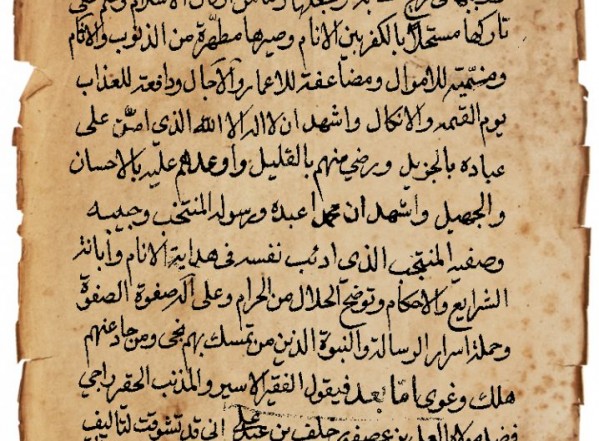 تاركها مستحلا بالكفر بين الانام وصيرها مطهرة من الذنوب والاثام
ومنمية للاموال ومضاعفة للاعمار والاجال ودافعة للعذاب
يوم القيمة والانكال واشهد ان لا اله الا الله الذى امتن على
عباده بالجزيل ورضي منهم بالقليل واوعدهم عليه بالاحسان
والجميل واشهد ان محمدا عبده ورسوله المنتخب وحبيبه
وصفيه المنتجب الذى ادئب نفسه فى هداية الانام وابانة
الشرايع والاحكام وتوضيح الحلال من الحرام وعلى آله صفوة الصفوة
وحملة اسرار الرسالة والنبوة الذين من تمسك بهم نجى ومن حاد عنهم
هلك وغوى اما بعد فيقول الفقير الاسير والمذنب الحقير راجي
فضل بن عصفور خلف بن عبد علي انى قد تشوقت لتاليف